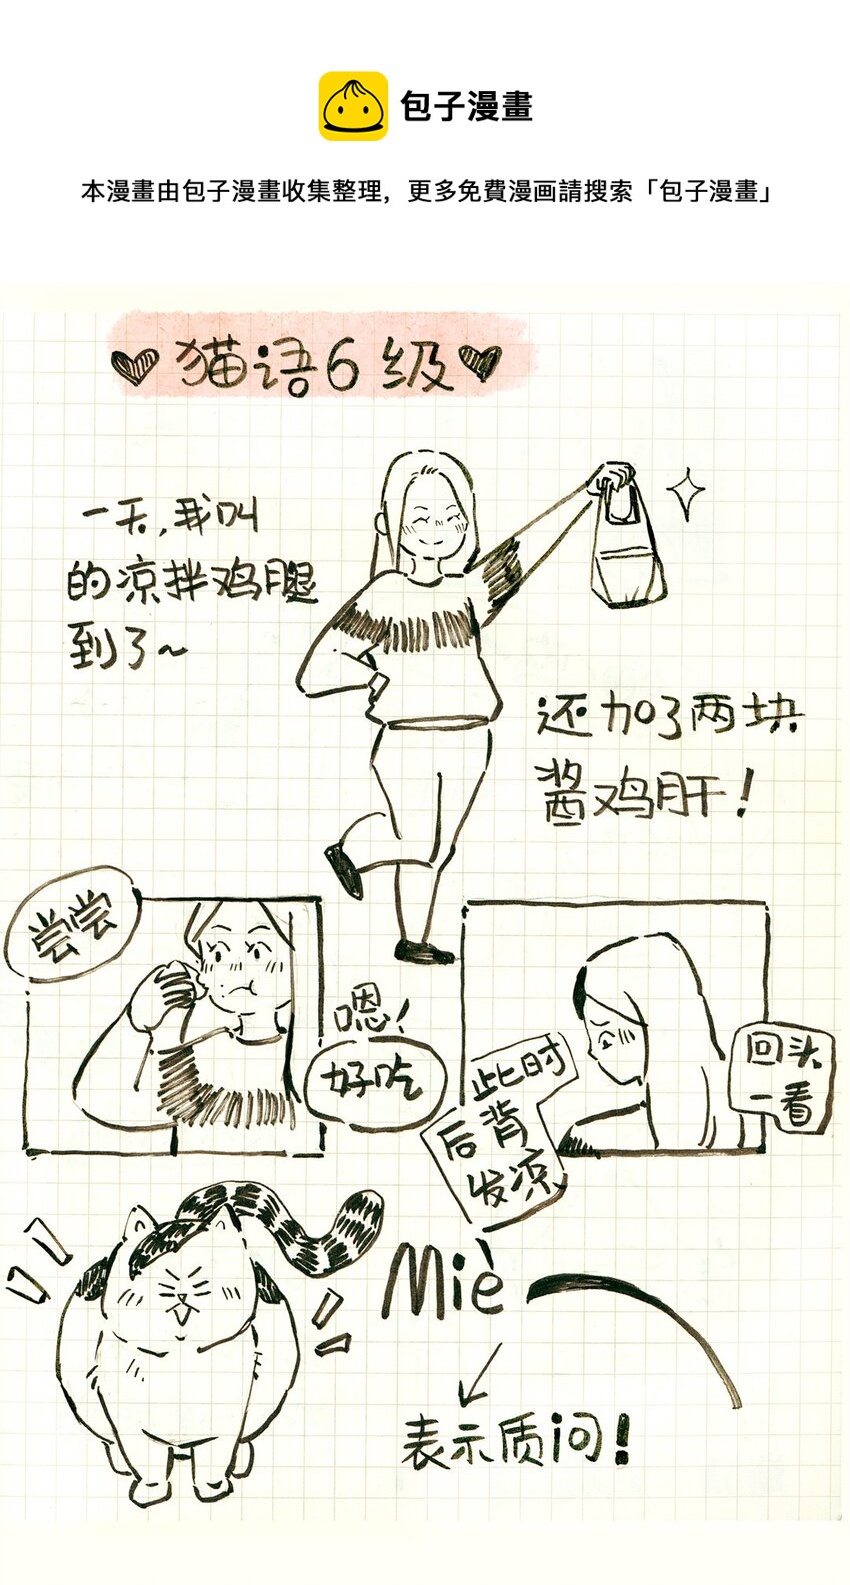 包子漫畫
本漫畫由包子漫畫收集整理，更多免費漫画請搜索「包子漫畫」
猫语6级
一天,我叫
的凉拌鸡腿
到了~
还加了两块
酱鸡肝!
尝尝
嗯!
好吃
此时
后背
发凉
回头
一看
Miè
表示质问!